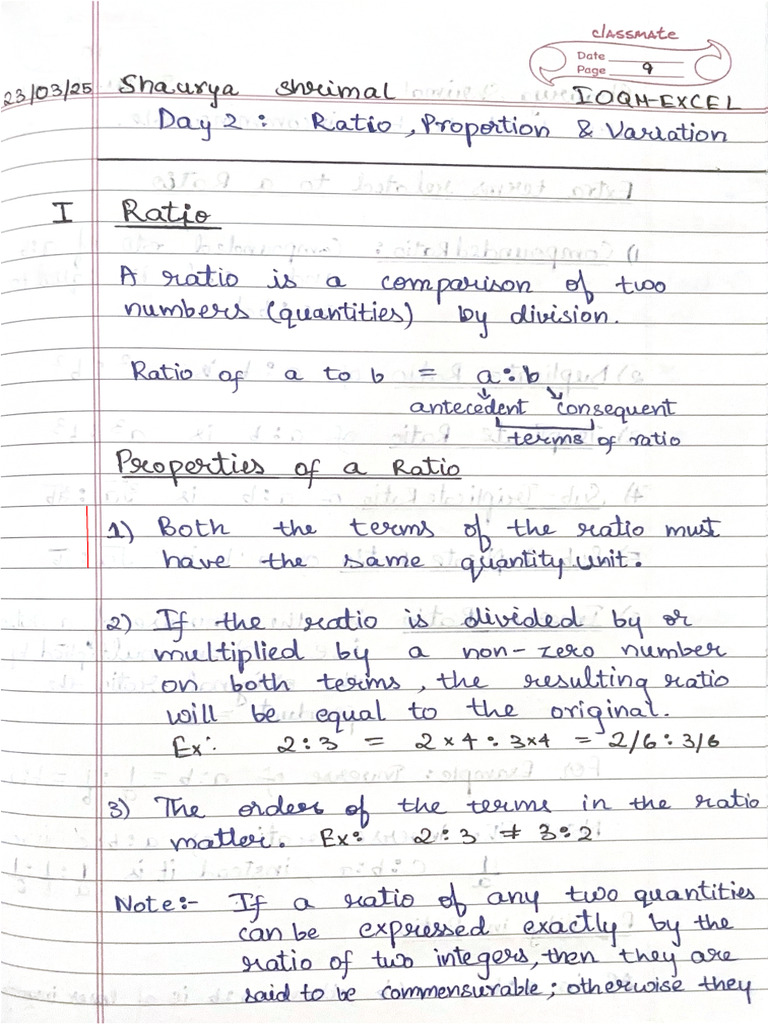 classmate
Date
Page 9
23/03/25 Shaurya Shrimal IOQM-EXCEL
Day 2 : Ratio, Proportion & Variation
I Ratio
A ratio is a comparison of two
numbers (quantities) by division.
Ratio of a to b = a:b
antecedent consequent
terms of ratio
Properties of a Ratio
1) Both the terms of the ratio must
have the same quantity unit.
2) If the ratio is divided by or
multiplied by a non-zero number
on both terms, the resulting ratio
will be equal to the original.
Ex: 2:3 = 2×4 : 3×4 = 2/6 : 3/6
3) The order of the terms in the ratio
matter. Ex: 2:3 ≠ 3:2
Note:- If a ratio of any two quantities
can be expressed exactly by the
ratio of two integers, then they are
said to be commensurable; otherwise they